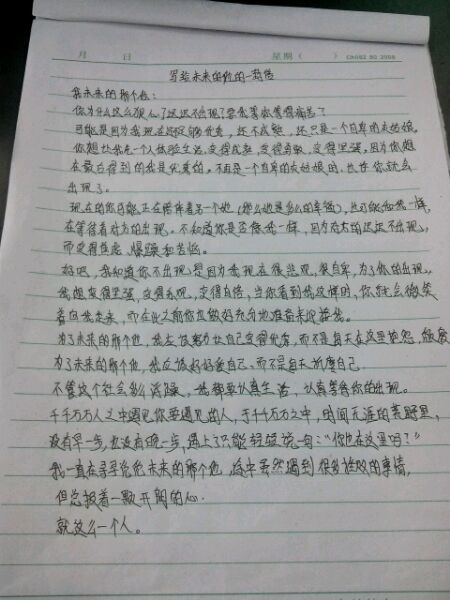 月 日 星期( )
写给未来的他的一封信
致未来的那个他:
你为什么这么狠心？迟迟不出现？要我等你等得痛苦？
可能是因为我现在还不够优秀，还不成熟，还只是一个自卑的灰姑娘。
你想让我先一个人体验生活，变得成熟，变得勇敢，变得坚强，因为你想
在最后得到的我是优秀的，不再是一个自卑的灰姑娘时，也许你就会
出现了。
现在的你可能正在陪伴着另一个她(那么她是多么的幸福)，也可能和我一样，
在等待着对方的出现。不知道你是否像我一样，因为对方的迟迟不出现，
而变得焦虑、爆躁和苦恼。
好吧，我知道你不出现，是因为我现在很悲观，很自卑，为了你的出现，
我想变得坚强，变得乐观，变得自信，当你看到我这样时，你就会微笑
着向我走来，而在此之前你也做好充分地准备来迎接我。
为了未来的那个他，我应该努力让自己变得优秀，而不是每天在这里抱怨，颓废
为了未来的那个他，我应该好好爱自己，而不是每天折磨自己
不管这个社会多么浮躁，我都要认真生活，认真等待你的出现。
千千万万人之中遇见你要遇见的人，于千千万万之中，时间无涯的荒野里，
没有早一步，也没有晚一步，遇上了只能轻轻说句："你也在这里吗？"
我一直在寻寻觅觅未来的那个他，途中虽然遇到很多挫败的事情，
但总抱着一颗开阔的心。
就这么一个人。